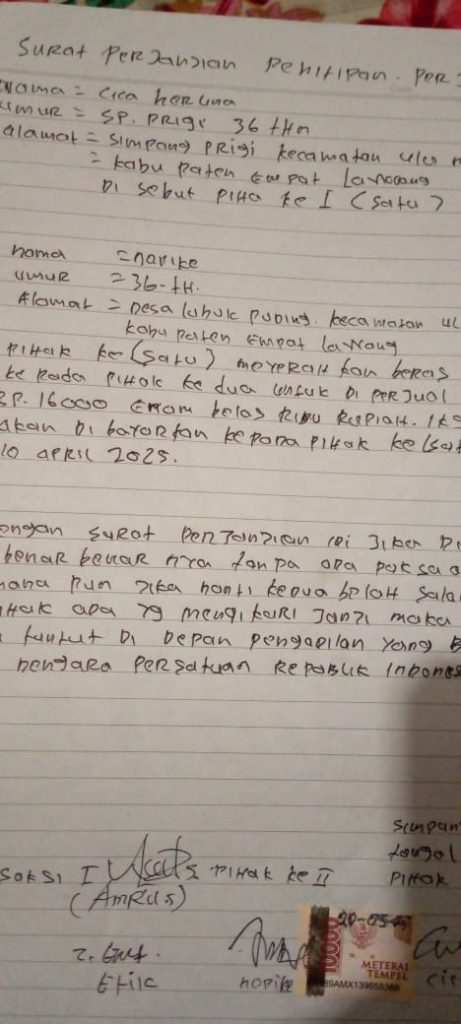 Surat PerJanJian Penitipan. Per
nama = cica herlina
umur = SP. PRIGi 36 tHn
alamat = simpang PRigi kecamatan ulu m
= kabu Paten Empat Lawang
Di sebut PiHa ke I (satu)
nama = narike
umur = 36-tH.
Alamat = Desa lubuk Puding. kecamatan ul
kabu Paten Empat lawang
PiHak ke (satu) meyeraH kan beras
ke Pada PiHak ke dua untuk Di Per Jual
RP. 16000 Enam belas Ribu RupiaH. 1kg
akan Di bayarkan ke Pada PiHak ke (sat
10 APRil 2025.
engan surat PerJanJian ini Jika Di
benar benar nya tanpa ada Paksaa
mana Pun Jika nanti kedua belaH
iHak ada yg mengikari JanJi maka
tuntut Di DePan Pengadilan yang B
nengara Persatuan RePoblik Indones
simPan
tanggal
saksi I PiHak ke II PiHak
(AmRus)
2.
Efilc nopike cic
20-05-25
10000
METERAI
TEMPEL
89AMX139655366